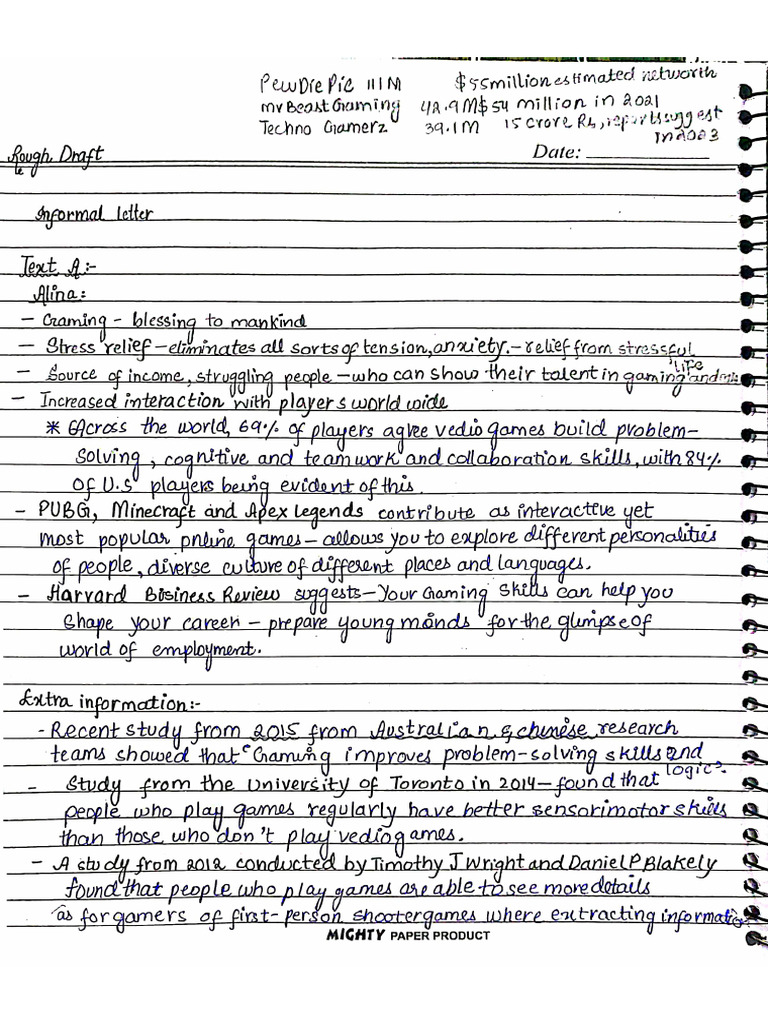 PewDiePie 111M $55million estimated networth
mr Beast Gaming 42.9M $54 million in 2021
Techno Gamerz 39.1M 15 crore Rs, reports suggest
in 2023
Rough Draft Date:
Informal Letter
Text A:-
Alina:
- Gaming - blessing to mankind
- Stress relief - eliminates all sorts of tension, anxiety. - relief from stressful
life
- Source of income, struggling people - who can show their talent in gaming and
- Increased interaction with players world wide
* Across the world, 69% of players agree vedio games build problem-
solving, cognitive and teamwork and collaboration skills, with 84%
of U.S players being evident of this.
- PUBG, Minecraft and Apex Legends contribute as interactive yet
most popular online games - allows you to explore different personalities
of people, diverse culture of different places and languages.
- Harvard Business Review suggests - Your Gaming Skills can help you
shape your career - prepare young minds for the glimpse of
world of employment.
Extra information:-
- Recent study from 2015 from Australian & chinese research
teams showed that "Gaming improves problem-solving skills and
logic".
- Study from the University of Toronto in 2014 - found that
people who play games regularly have better sensorimotor skills
than those who don't play vedio games.
- A study from 2012 conducted by Timothy J Wright and Daniel P Blakely
found that people who play games are able to see more details
as for gamers of first-person shooter games where extracting information
MIGHTY PAPER PRODUCT